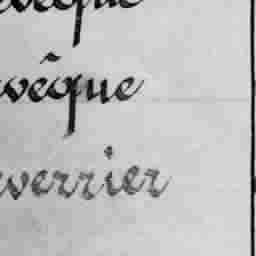 eveque
evêque
everrier